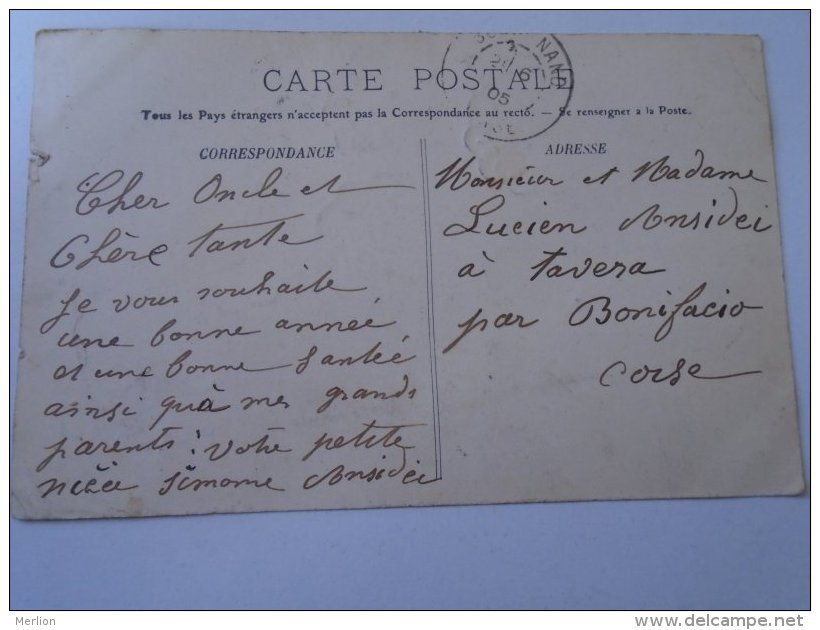 CARTE POSTALE
Tous les Pays étrangers n'acceptent pas la Correspondance au recto. — Se renseigner a la Poste.
CORRESPONDANCE
Cher Oncle et
Chère Tante
Je vous souhaite
une bonne année
et une bonne Santée
ainsi qu'à mes grands
parents. votre petite
nièce Simome Ansidei
ADRESSE
Monsieur et Madame
Lucien Ansidei
à Tavera
par Bonifacio
Corse
05
Merlion
www.delcampe.net